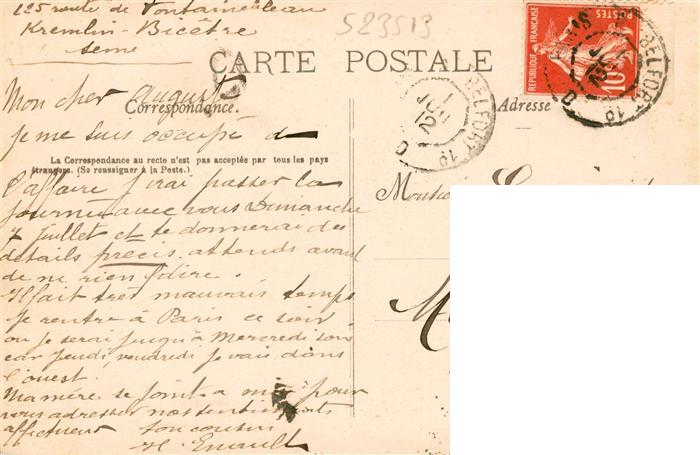 125 route de Fontainebleau
Kremlin-Bicêtre
Seine
523513
CARTE POSTALE
RÉPUBLIQUE FRANÇAISE
POSTES
10
BELFORT
BELFORT
Correspondance.
Adresse
La Correspondance au recto n'est pas acceptée par tous les pays
étrangers. (Se renseigner à la Poste.)
Mon cher Auguste
je me suis occupé de
l'affaire j'irai passer la
journée avec vous Dimanche
7 Juillet et te donnerai des
détails précis. attends avant
de ne rien dire.
Il fait très mauvais temps
Je rentre à Paris ce soir
où je serai jusqu'à Mercredi soir
car Jeudi, vendredi je vais dans
l'ouest.
Ma mère se joint à moi pour
vous adresser nos sentiments
affectueux ton cousin
H. Enault